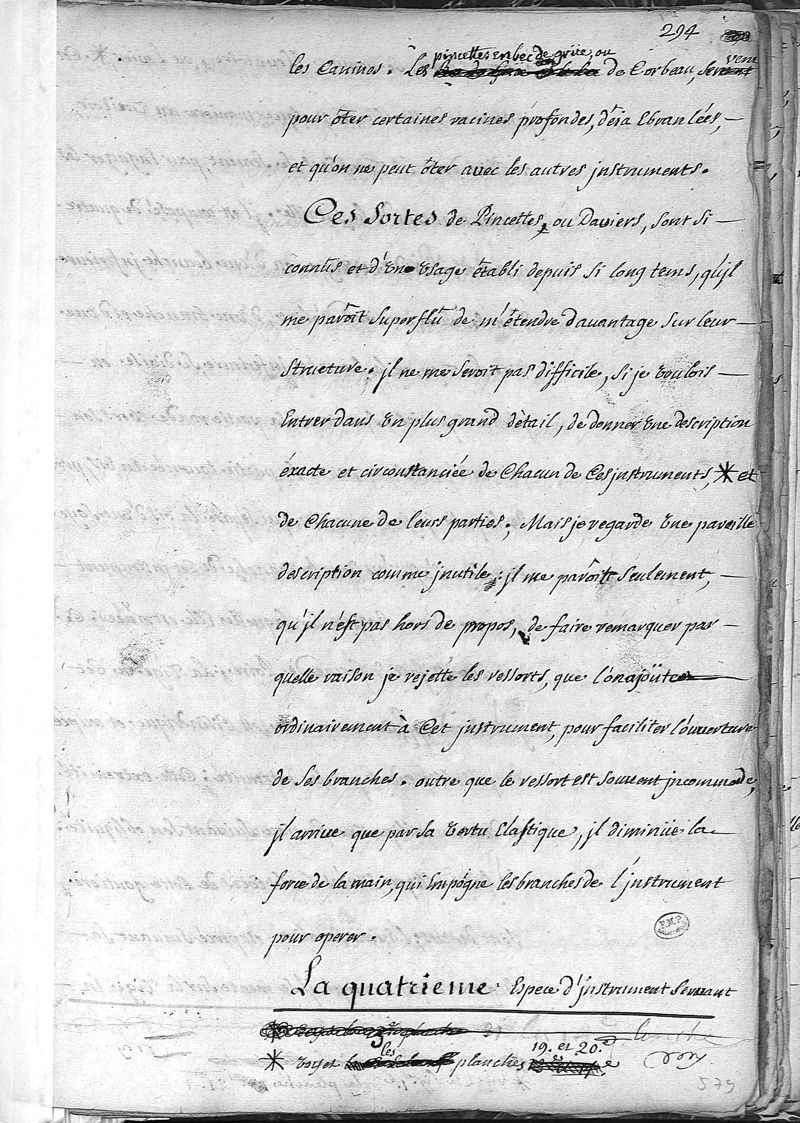 294
pincettes en bec de grüe, ou
les Canines. Les de Corbeau, servent
pour ôter certaines racines profondes, déja Ebranlées,
et qu'on ne peut ôter avec les autres jnstruments.
Ces Sortes de Pincettes, ou Daviers, sont si
connûs et d'un usage êtabli depuis si long tems, qu'jl
me parôit superflû de m'étendre davantage sur leur
structure. jl ne me seroit pas difficile, si je voulois
Entrer dans un plus grand détail, de donner une description
éxacte et circonstanciée de Chacun de Ces jnstruments, * et
de Chacune de leurs parties; Mais je regarde une pareille
description comme jnutile; jl me parôit seulement,
qu'jl n'est pas hors de propos, de faire remarquer par
quelle raison je rejette les ressorts, que l'on ajoûte
ordinairement à Cet jnstrument, pour faciliter l'ouverture
de ses branches. outre que le ressort est souvent jncommode,
jl arrive que par sa vertu Elastique, jl diminüe la
force de la main, qui Empôgne les branches de l'jnstrument
pour operer.
La quatrieme Espece d'jnstrument servant
* voyez les planches 19. et 20.e
579